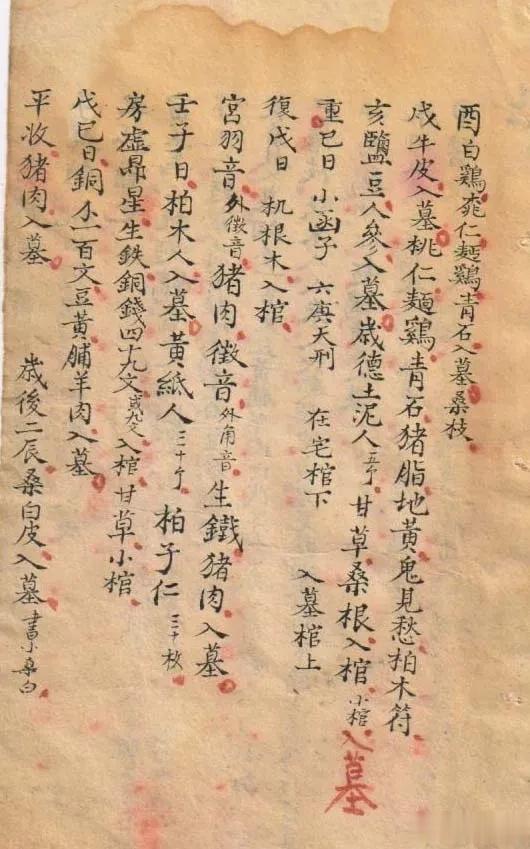 酉白鷄桃仁麵鷄青石入墓桑枝
戍牛皮入墓桃仁麵鷄青石猪脂地黃鬼見愁柏木符
亥鹽豆人參入墓歲德土泥人五个甘草桑根入棺小棺入墓
重巳日小函子 六庚天刑 在宅棺下 入墓棺上
復戊日 机根木入棺
宮羽音外徵音猪肉徵音外角音生鐵猪肉入墓
壬子日柏木人入墓黃紙人三十个 柏子仁三十枚
房虛昴星生鉄銅錢四十九文或九个入棺甘草小棺
戊巳日銅小一百文豆黃脯羊肉入墓
平收猪肉入墓 歲後二辰桑白皮入墓書小桑白